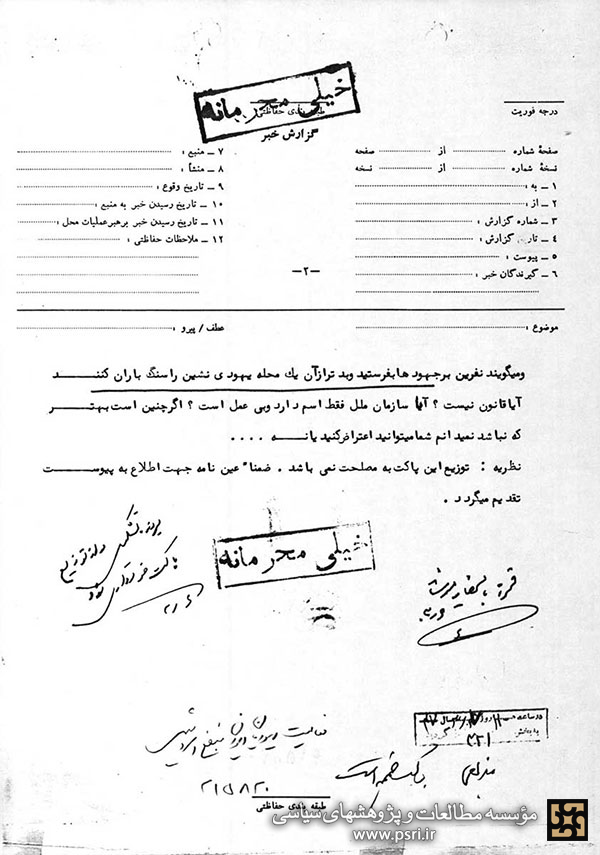 خیلی محرمانه
طبقه بندی حفاظتی
گزارش خبر
درجه فوریت
صفحهٔ شماره از صفحه
نسخهٔ شماره از نسخه
۱ ـ به :
۲ ـ از :
۳ ـ شماره گزارش :
۴ ـ تاریخ گزارش :
۵ ـ پیوست :
۶ ـ گیرندگان خبر :
۷ ـ منبع :
۸ ـ منشأ :
۹ ـ تاریخ وقوع :
۱۰ ـ تاریخ رسیدن خبر به منبع :
۱۱ ـ تاریخ رسیدن خبر برهبرعملیات محل :
۱۲ ـ ملاحظات حفاظتی :
ـ۲ـ
موضوع :
عطف / پیرو :
ومیگویند نفرین بر جهود ها بفرستید وبد تر ازآن یك محله یهود ی نشین را سنگ باران کننـــد
آیا قانون نیست ؟ آیا سازمان ملل فقط اسم دارد وبی عمل است ؟ اگر چنین است بهتـر
که نباشد نمید انم شما میتوانید اعتراض کنید یا نـــه ....
نظریه : توزیع این پاکت به مصلحت نمی باشد . ضمنا" عین نامه جهت اطلاع به پیوست
تقد یم میگرد د .
خیلی محرمانه
فعالیت
۲۱۵۸۲۰
در ساعه روز سال
۳۲۱
طبقه بندی حفاظتی
مؤسسه مطالعات و پژوهشهای سیاسی
www.psri.ir